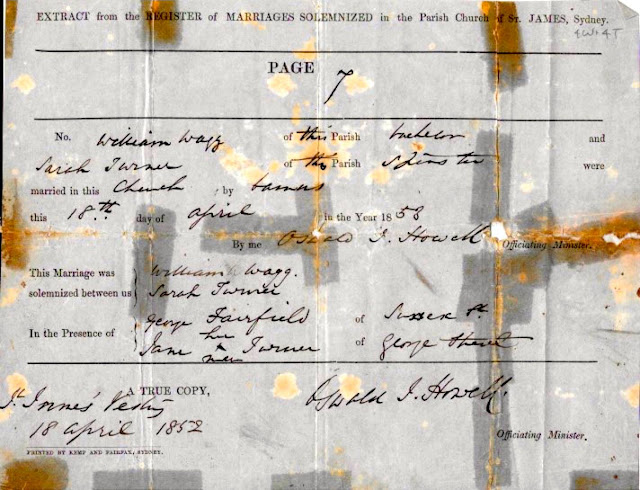 EXTRACT from the REGISTER of MARRIAGES SOLEMNIZED in the Parish Church of ST. JAMES, Sydney.
PAGE 7
No. William Wagg of this Parish bachelor and
Sarah Turner of this Parish Spinster were
married in this Church by banns
this 18th day of April in the Year 1853
By me Oswald J. Howell Officiating Minister.
This Marriage was solemnized between us William Wagg.
Sarah Turner
In the Presence of George Fairfield of Sussex St.
Jane her x mark Turner of George Street
A TRUE COPY,
St. James' Vestry
18 April 1852
Oswald J. Howell.
Officiating Minister.
PRINTED BY KEMP AND FAIRFAX, SYDNEY.